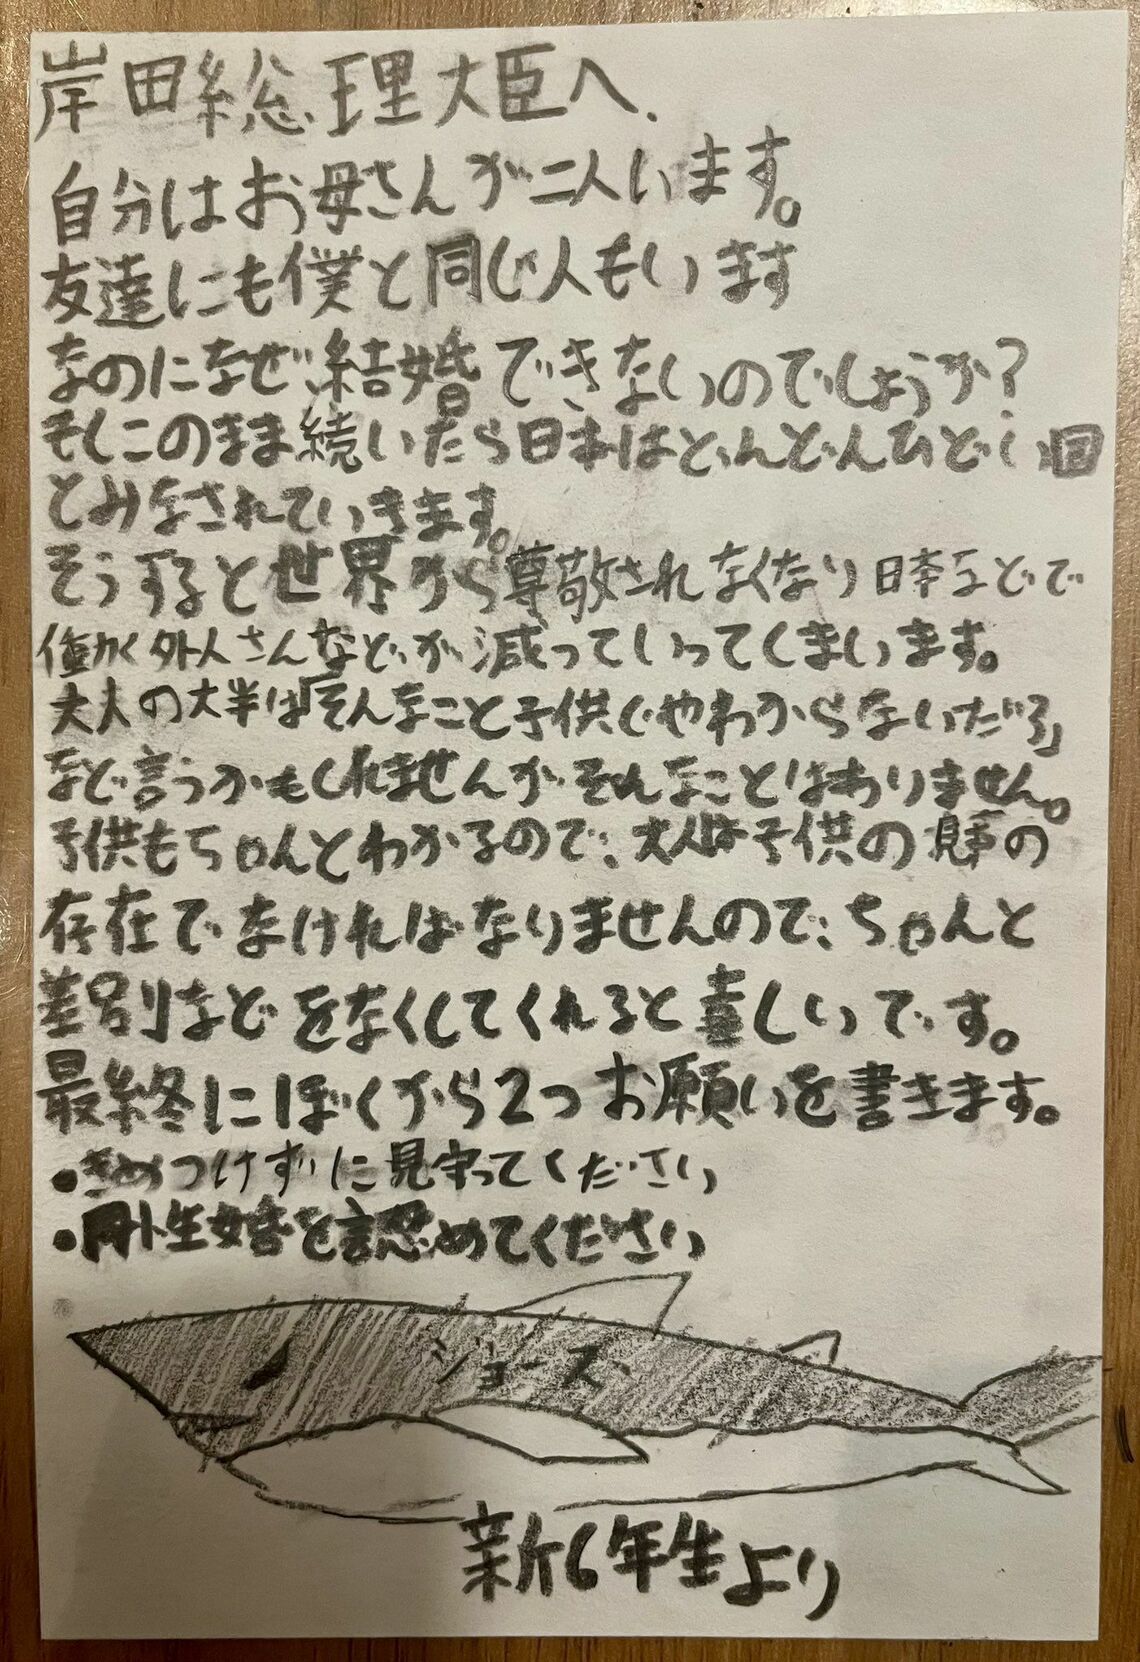 岸田総理大臣へ.
自分はお母さんが二人います。
友達にも僕と同じ人もいます
なのになぜ結婚できないのでしょうか?
もしこのまま続いたら日本はどんどんひどい国
とみなされていきます。
そうすると世界から尊敬されなくなり日本などで
働く外人さんなどが減っていってしまいます。
大人の大半は「そんなこと子供じゃわからないだろ」
など言うかもしれませんがそんなことはありません。
子供もちゃんとわかるので、大人は子供の見本の
存在でなければなりませんので、ちゃんと
差別などをなくしてくれると嬉しいです。
最終にぼくから2つお願いを書きます。
・きめつけずに見守ってください
・同性婚を認めてください
ジョーズ
新6年生より